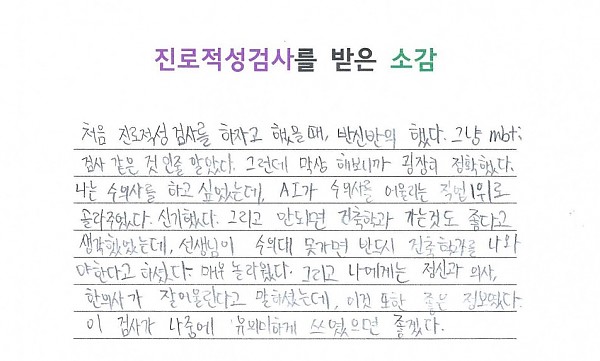 진로적성검사를 받은 소감
처음 진로적성검사를 하자고 했을때, 반신반의 했다. 그냥 mbti
검사 같은 것 인줄 알았다. 그런데 막상 해보니까 굉장히 정확했다.
나는 수의사를 하고 싶었는데, AI가 수의사를 어울리는 직업 1위로
골라주었다. 신기했다. 그리고 안되면 건축학과 가는것도 좋다고
생각했었는데, 선생님이 수의대 못가면 반드시 건축학과를 나와
야한다고 하셨다. 매우 놀라웠다. 그리고 나에게는 정신과 의사,
한의사가 잘어울린다고 말하셨는데, 이것 또한 좋은 정보였다.
이 검사가 나중에 유의미하게 쓰였으면 좋겠다.